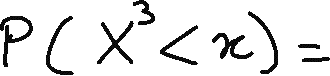 P(X³<x)=